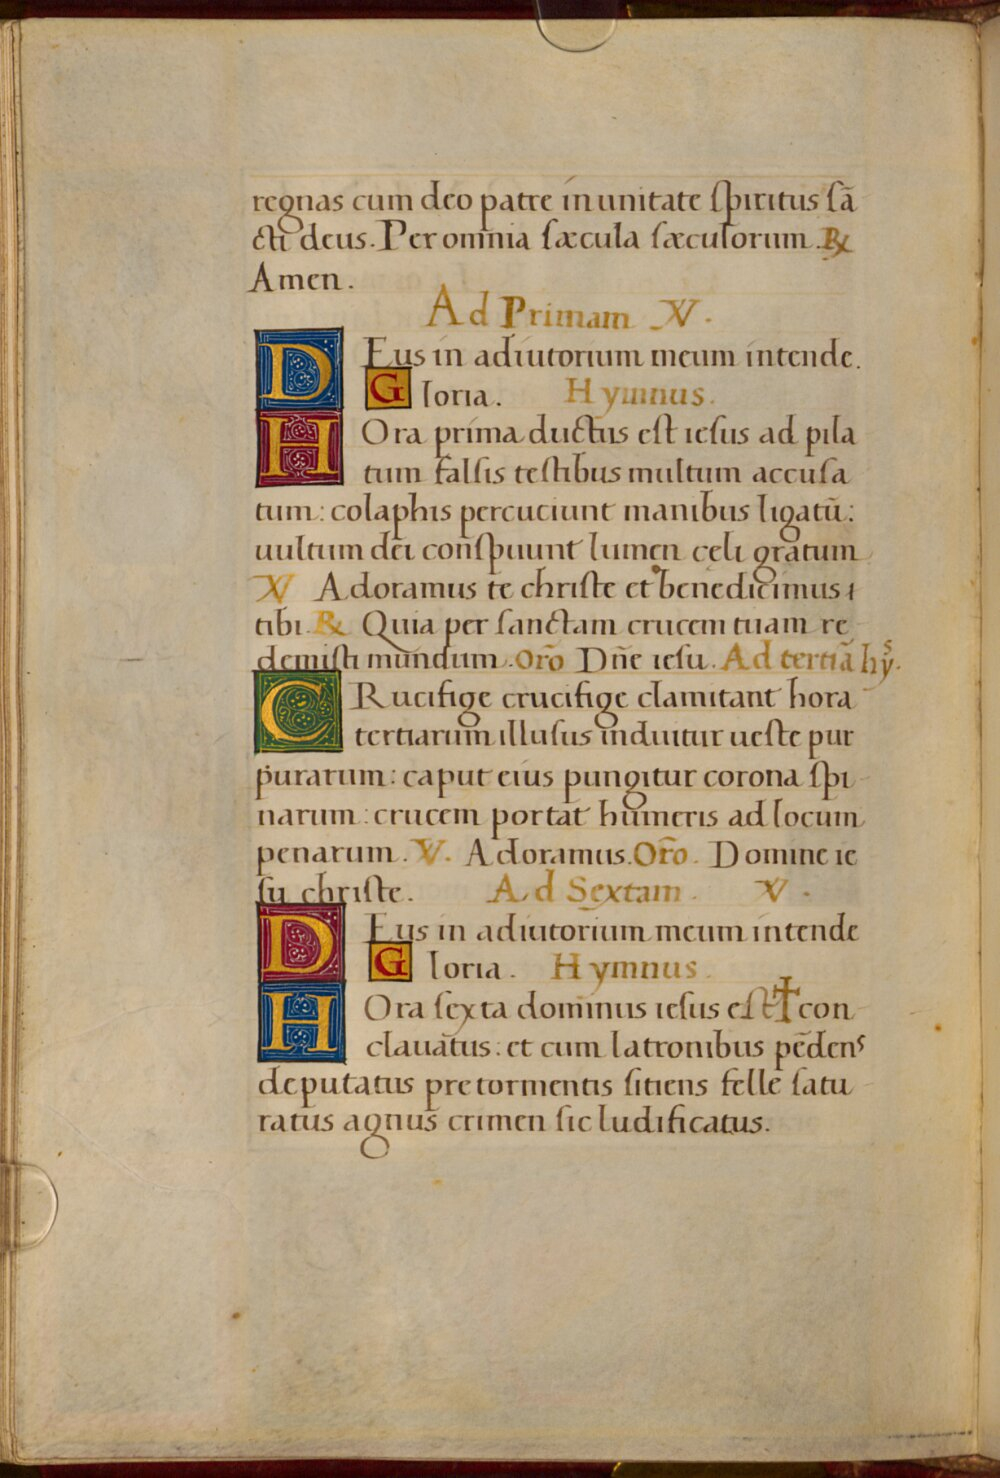 regnas cum deo patre in unitate spiritus sā
cti deus. Per omnia sæcula sæculorum. ℟
Amen.
Ad Primam ℣.
DEus in adiutorium meum intende.
Gloria. Hymnus.
HOra prima ductus est iesus ad pila
tum falsis testibus multum accusa
tum: colaphis percuciunt manibus ligatū:
uultum dei conspuunt lumen celi gratum
℣ Adoramus te christe et benedicimus
tibi. ℟ Quia per sanctam crucem tuam re
demisti mundum. Orō Dñe iesu. Ad tertiā hȳs.
CRucifige crucifige clamitant hora
tertiarum illusus induitur ueste pur
purarum: caput eius pungitur corona spi
narum: crucem portat humeris ad locum
penarum. ℣. Adoramus. Orō. Domine ie
su christe. Ad Sextam. ℣.
DEus in adiutorium meum intende
Gloria. Hymnus.
HOra sexta dominus iesus est ✝ con
clauatus: et cum latronibus pēdens
deputatus pre tormentis sitiens felle satu
ratus agnus crimen sic ludificatus.